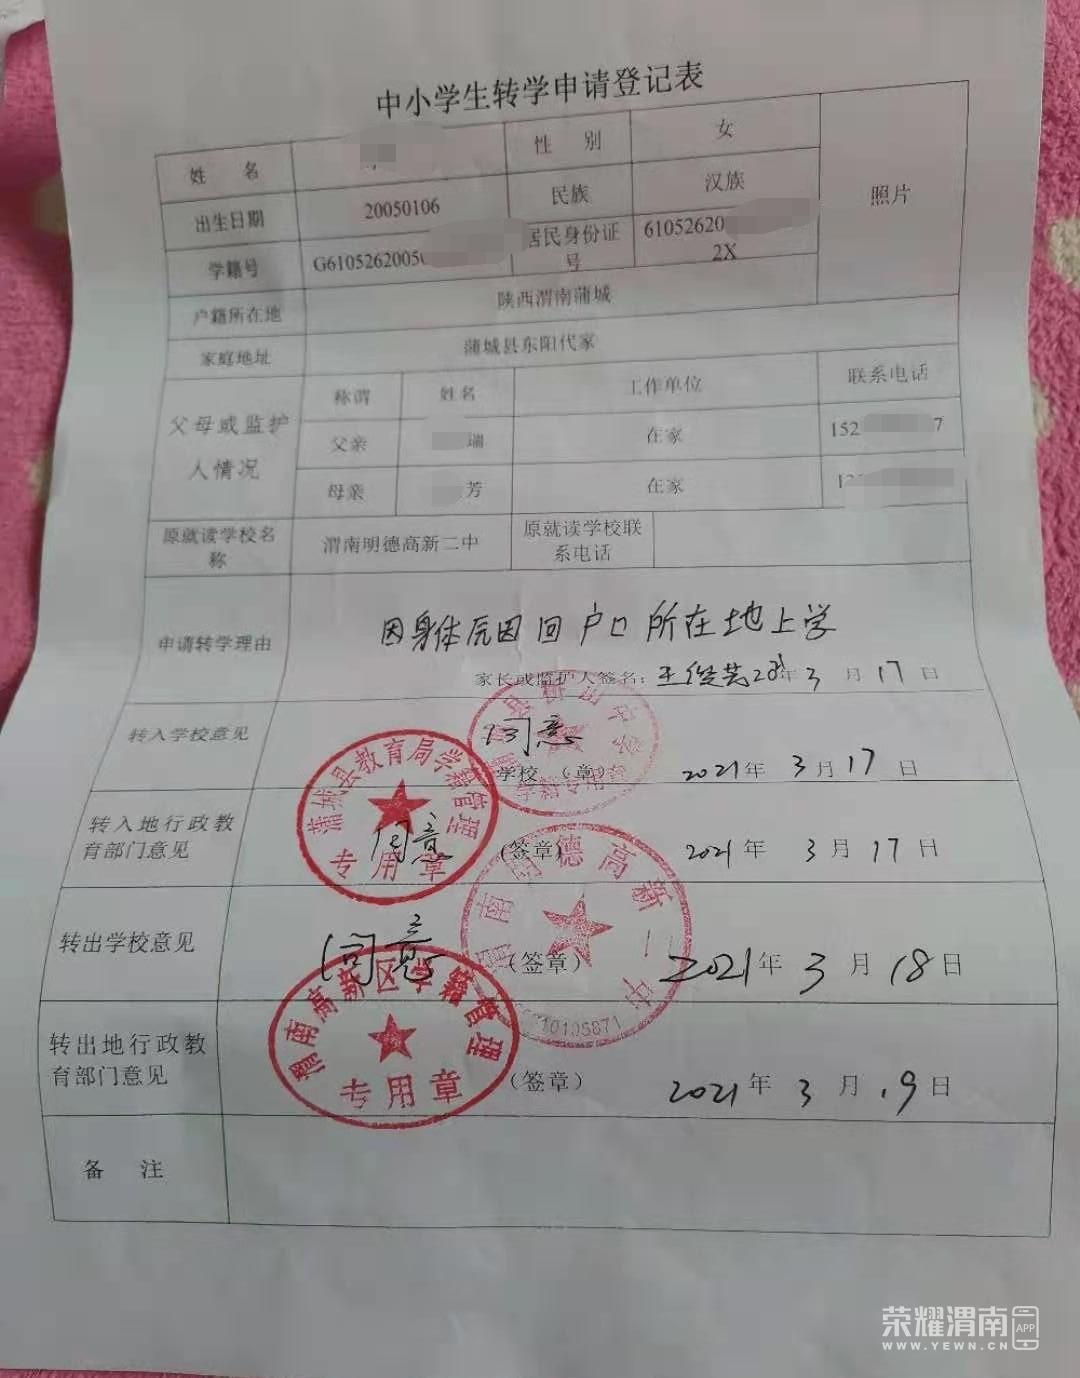 中小学生转学申请登记表
姓 名 性 别 女 照片
出生日期 20050106 民族 汉族
学籍号 G6105262005 居民身份证号 61052620 2X
户籍所在地 陕西渭南蒲城
家庭地址 蒲城县东阳代家
父母或监护人情况 称谓 姓名 工作单位 联系电话
父亲 瑞 在家 152 7
母亲 芳 在家
原就读学校名称 渭南明德高新二中 原就读学校联系电话
申请转学理由 因身体原因回户口所在地上学
家长或监护人签名: 年 3 月 17 日
转入学校意见 同意
学校(章) 2021年 3月17 日
学籍专用章
转入地行政教育部门意见 同意 (签章) 2021年 3月17日
蒲城县教育局学籍管理
专用章
转出学校意见 同意 (签章) 2021年 3月18日
渭南明德高新二中
10105871
转出地行政教育部门意见 (签章) 2021年 3月19日
渭南高新区学籍管理
专用章
备 注
荣耀渭南 APP
WWW.YEWN.CN